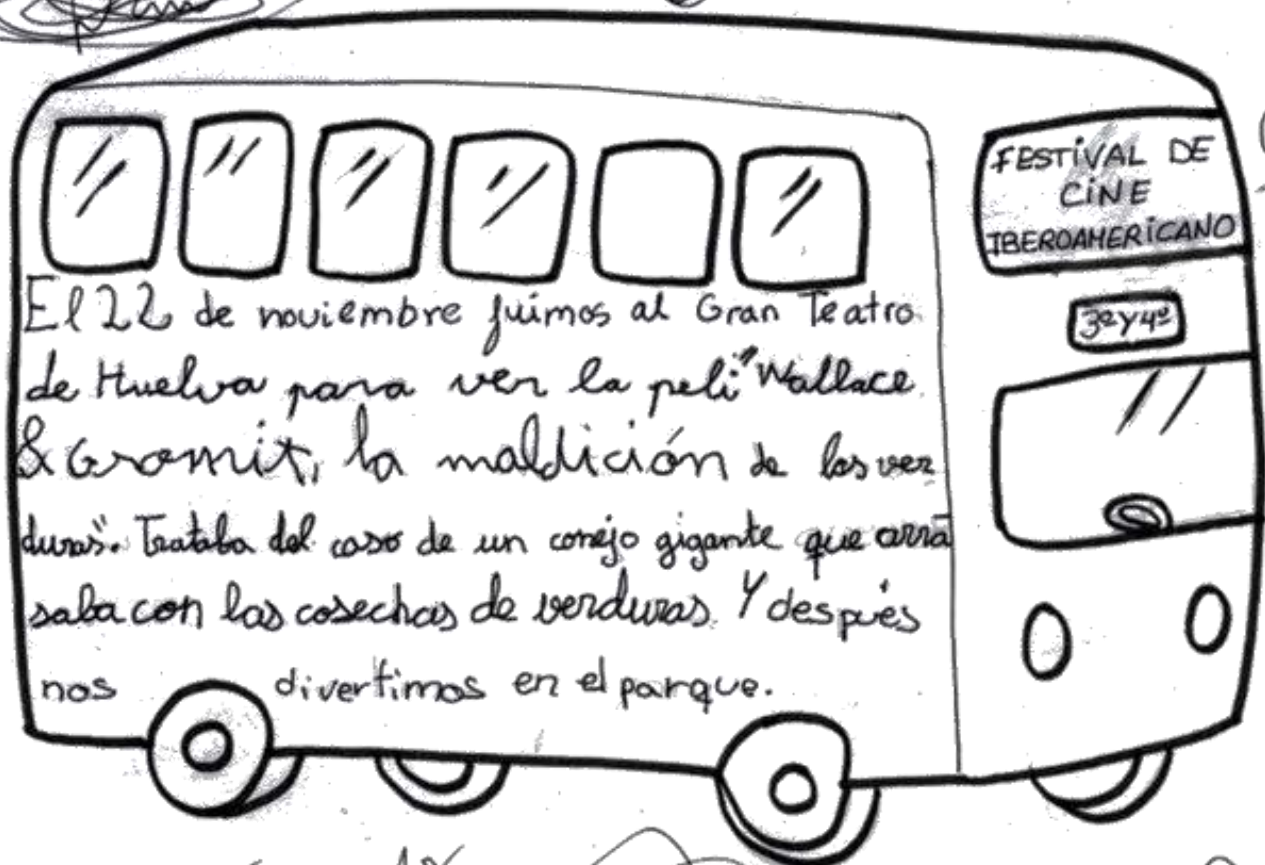 FESTIVAL DE
CINE
IBEROAMERICANO
3º Y 4º
El 22 de noviembre fuimos al Gran Teatro
de Huelva para ver la peli "Wallace
& Gromit, la maldición de las ver
duras". Trataba del caso de un conejo gigante que arra
saba con las cosechas de verduras. Y después
nos divertimos en el parque.